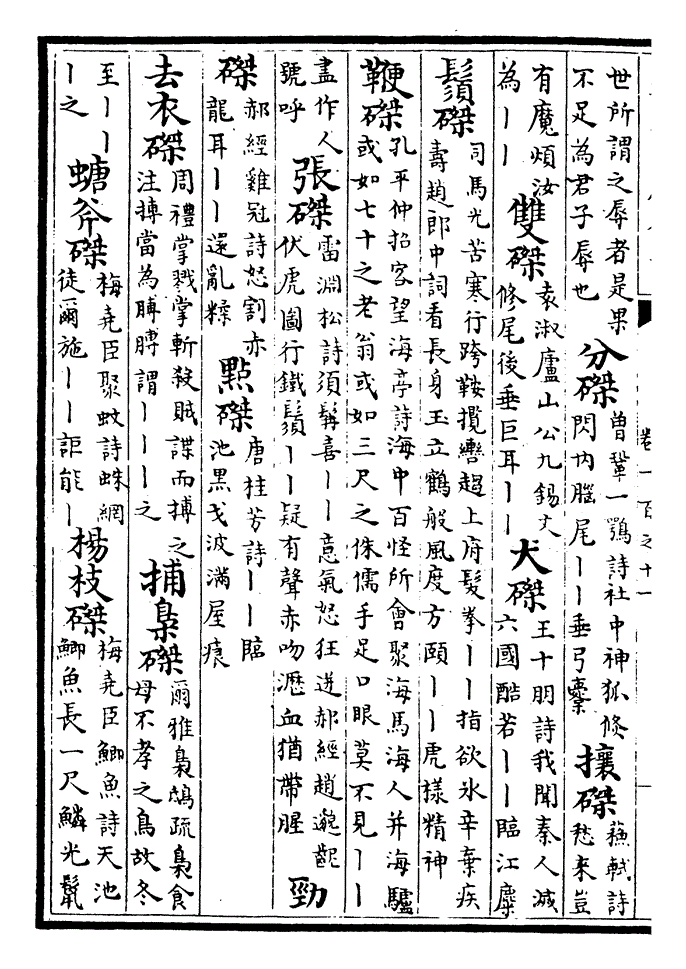 世所謂之辱者是果不足為君子辱也 分磔 曾鞏一鶚詩社中神狐修閃內腦尾丨丨垂弓櫜 攘磔 蘇軾詩愁来豈
有魔頻汝為丨丨 雙磔 袁淑廬山公九錫文修尾後垂巨耳丨丨 犬磔 王十朋詩我聞秦人滅六國酷若丨丨臨江麋
鬚磔 司馬光苦寒行跨鞍攬轡趨上府髮拳丨丨指欲氷辛棄疾壽趙郎中詞看長身玉立鶴般風度方頤丨丨虎樣精神
鞭磔 孔平仲招客望海亭詩海中百怪所會聚海馬海人并海驢或如七十之老翁或如三尺之侏儒手足口眼莫不見丨丨
盡作人號呼 張磔 雷淵松詩須髯喜丨丨意氣怒狂迸郝經趙邈齪伏虎圖行鐵鬚丨丨疑有聲赤吻瀝血猶帶腥 勁
磔 郝經雞冠詩怒割赤龍耳丨丨還亂糅 點磔 唐桂芳詩丨丨臨池黑戈波滿屋痕
去衣磔 周禮掌戮掌斬殺賊諜而搏之注搏當為膊膊謂丨丨丨之 捕梟磔 爾雅梟鴟疏梟食母不孝之鳥故冬
至丨丨丨之 螗斧磔 梅堯臣聚蚊詩蛛網徒爾施丨丨詎能丨 楊枝磔 梅堯臣鯽魚詩天池鯽魚長一尺鱗光鬣
卷一百之十一